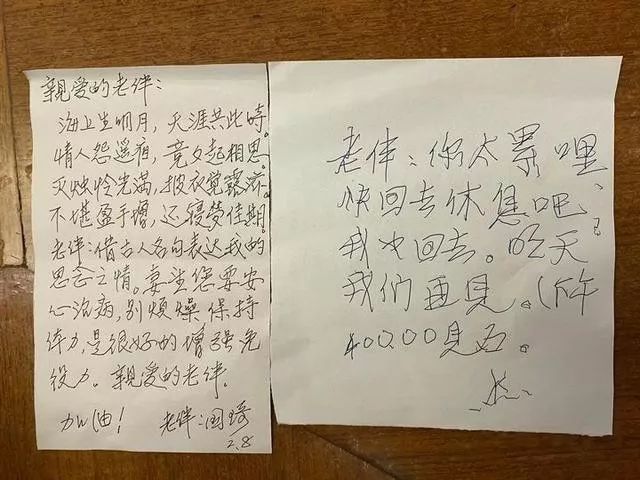 親爱的老伴：
海上生明月，天涯共此時。
情人怨遥夜，竟夕起相思
灭烛怜光满，披衣覚露滋。
不堪盈手增，还寝夢佳期。
老伴：借古人名句表达我的
思念之情。妻望您要安
心治病，别煩燥保持
体力，是很好的增强免
役力。親爱的老伴，
加油！ 老伴：国琦
2.8
老伴：你太累哩
快回去休息吧、
我也回去。明天
我们再见。(下午
400.00見面。